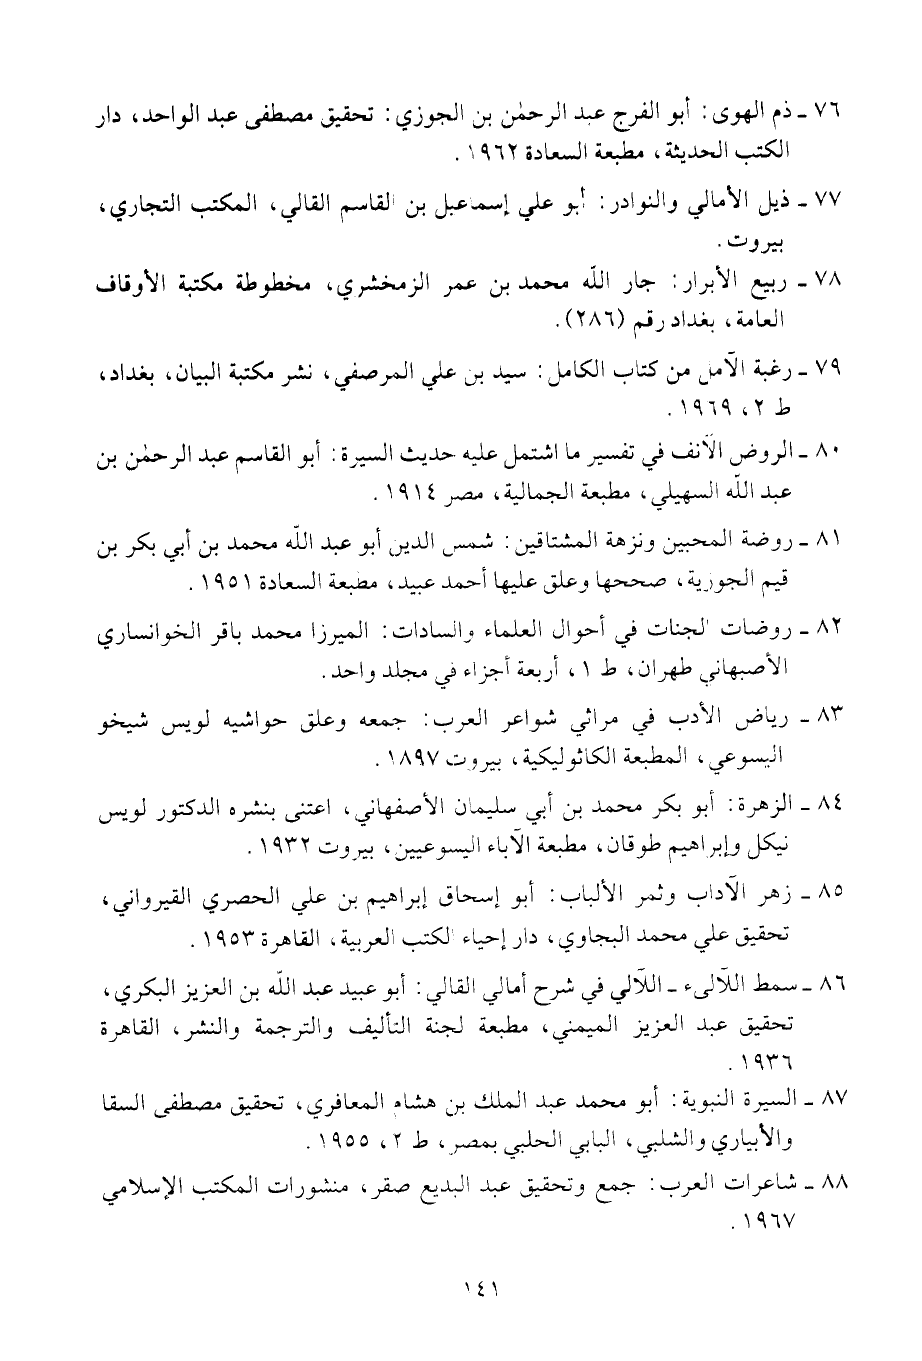 ٧٦ ـ ذم الهوى: أبو الفرج عبد الرحمٰن بن الجوزي: تحقيق مصطفى عبد الواحد، دار
الكتب الحديثة، مطبعة السعادة ١٩٦٢.
٧٧ ـ ذيل الأمالي والنوادر: أبو علي إسماعيل بن القاسم القالي، المكتب التجاري،
بيروت.
٧٨ ـ ربيع الأبرار: جار اللّه محمد بن عمر الزمخشري، مخطوطة مكتبة الأوقاف
العامة، بغداد رقم (٢٨٦).
٧٩ ـ رغبة الآمل من كتاب الكامل: سيد بن علي المرصفي، نشر مكتبة البيان، بغداد،
ط ٢، ١٩٦٩.
٨٠ ـ الروض الآنف في تفسير ما اشتمل عليه حديث السيرة: أبو القاسم عبد الرحمٰن بن
عبد اللّه السهيلي، مطبعة الجمالية، مصر ١٩١٤.
٨١ ـ روضة المحبين ونزهة المشتاقين: شمس الدين أبو عبد اللّه محمد بن أبي بكر بن
قيم الجوزية، صححها وعلق عليها أحمد عبيد، مطبعة السعادة ١٩٥١.
٨٢ ـ روضات الجنات في أحوال العلماء والسادات: الميرزا محمد باقر الخوانساري
الأصبهاني طهران، ط ١، أربعة أجزاء في مجلد واحد.
٨٣ ـ رياض الأدب في مراثي شواعر العرب: جمعه وعلق حواشيه لويس شيخو
اليسوعي، المطبعة الكاثوليكية، بيروت ١٨٩٧.
٨٤ ـ الزهرة: أبو بكر محمد بن أبي سليمان الأصفهاني، اعتنى بنشره الدكتور لويس
نيكل وإبراهيم طوقان، مطبعة الآباء اليسوعيين، بيروت ١٩٣٢.
٨٥ ـ زهر الآداب وثمر الألباب: أبو إسحاق إبراهيم بن علي الحصري القيرواني،
تحقيق علي محمد البجاوي، دار إحياء الكتب العربية، القاهرة ١٩٥٣.
٨٦ ـ سمط اللآلىء ـ اللآلي في شرح أمالي القالي: أبو عبيد عبد اللّه بن العزيز البكري،
تحقيق عبد العزيز الميمني، مطبعة لجنة التأليف والترجمة والنشر، القاهرة
١٩٣٦.
٨٧ ـ السيرة النبوية: أبو محمد عبد الملك بن هشام المعافري، تحقيق مصطفى السقا
والأبياري والشلبي، البابي الحلبي بمصر، ط ٢، ١٩٥٥.
٨٨ ـ شاعرات العرب: جمع وتحقيق عبد البديع صقر، منشورات المكتب الإسلامي
١٩٦٧.
١٤١